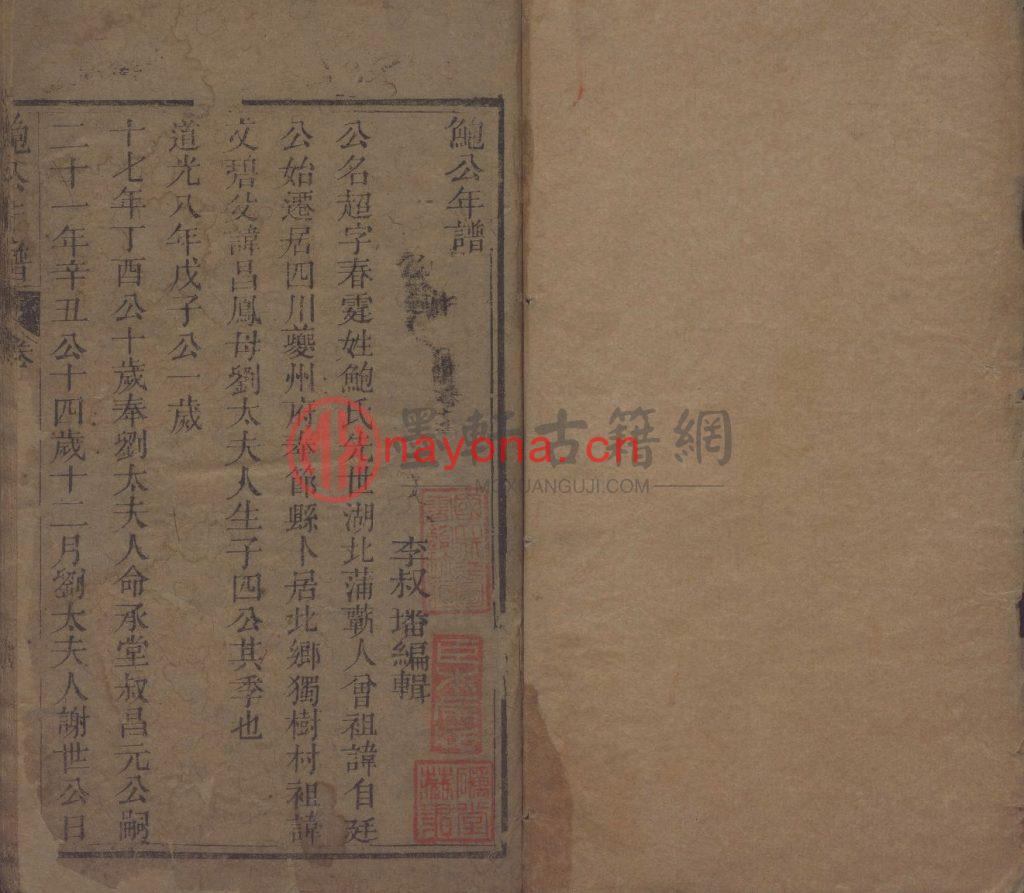 鮑公年譜
李叔璠編輯
公名超字春霆姓鮑氏先世湖北蒲蘄人曾祖諱自廷
公始遷居四川夔州府奉節縣卜居北鄉獨樹村祖諱
文碧父諱昌鳳母劉太夫人生子四公其季也
道光八年戊子公一歲
十七年丁酉公十歲奉劉太夫人命承堂叔昌元公嗣
二十一年辛丑公十四歲十二月劉太夫人謝世公日
墨軒古籍網
nayona.cn
MOXUANGUJI.COM